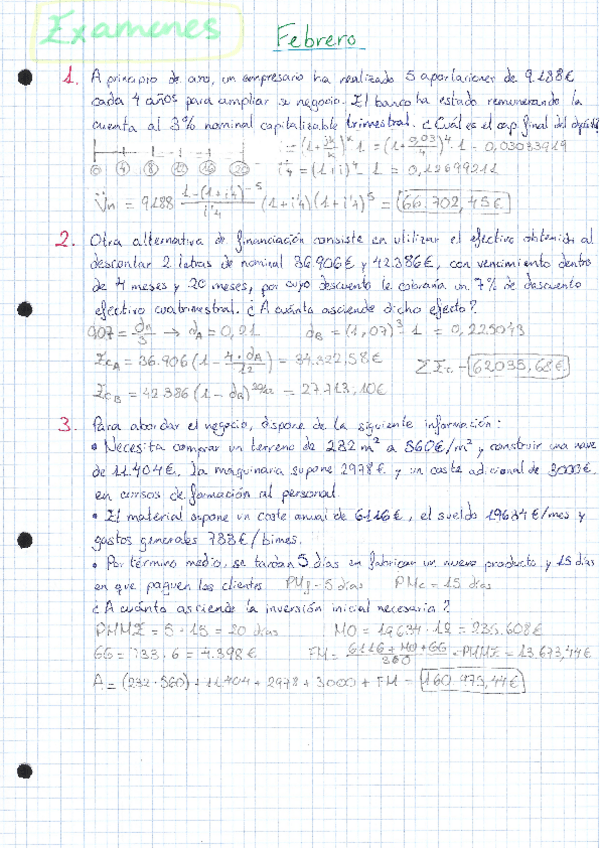 Examenes
Febrero
1. A principio de año, un empresario ha realizado 5 aportaciones de 9.188€
cada 4 años para ampliar su negocio. El banco ha estado remunerando la
cuenta al 3% nominal capitalizable trimestral. ¿Cuál es el cap. final del
i = (1 + jk/k)^k - 1 = (1 + 0,03/4)^4 - 1 = 0,03033919
0 4 8 12 16 20
i4 = (1+i)^4 - 1 = 0,12699211
V̈n = 9188 1-(1+i4)^-5 / i4 (1+i4)(1+i4)^5 = 66.702,45€
2. Otra alternativa de financiación consiste en utilizar el efectivo obtenido al
descontar 2 letras de nominal 36.906€ y 42.386€, con vencimiento dentro
de 4 meses y 20 meses, por cuyo descuento le cobraría un 7% de descuento
efectivo cuatrimestral. ¿A cuánto asciende dicho efecto?
0,07 = dn/3 → dA = 0,21 dB = (1,07)^3 - 1 = 0,225043
= 36.906 (1 - 4·dA/12) = 34.322,58€
Σ = 62035,68€
= 42.386 (1 - dB) = 27.713,10€
3. Para abordar el negocio, dispone de la siguiente información:
• Necesita comprar un terreno de 232 m² a 560€/m² y construir una nave
de 11.404€. La maquinaria supone 2978€ y un coste adicional de 3000€
en cursos de formación al personal.
• El material supone un coste anual de 6116€, el sueldo 19634€/mes y
gastos generales 733€/bimes.
• Por término medio, se tardan 5 días en fabricar un nuevo producto y 15 días
en que paguen los clientes PMf = 5 días PMc = 15 días
¿A cuánto asciende la inversión inicial necesaria?
PMME = 5 + 15 = 20 días MO = 19634·12 = 235.608€
GG = 733·6 = 4.398€ FM = 6116 + MO + GG / 360 · PMME = 13.673,44€
A = (232·560) + 11404 + 2978 + 3000 + FM = 160.973,44€